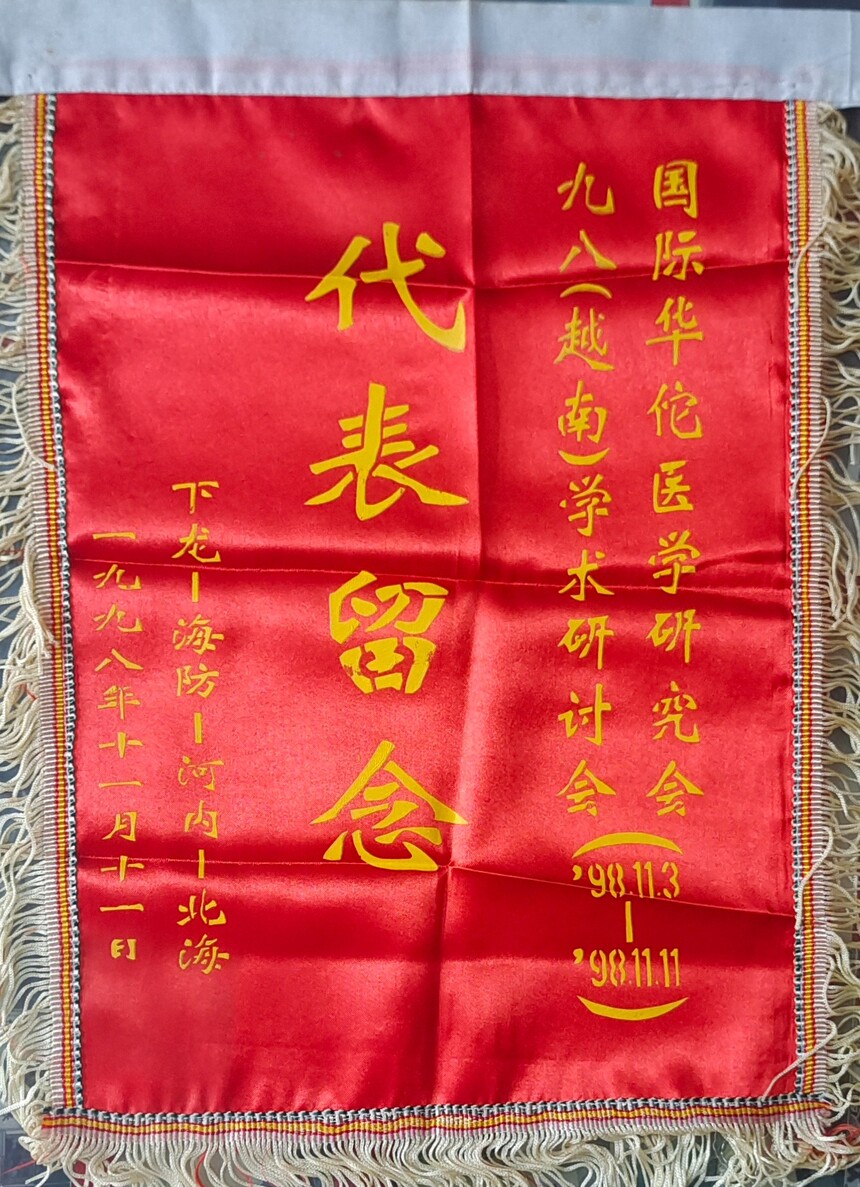 国际华佗医学研究会
九八(越南)学术研讨会
('98.11.3—'98.11.11)
代表留念
下龙—海防—河内—北海
一九九八年十一月十一日